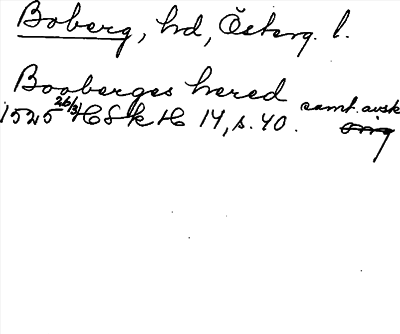 Boberg, hd, Österg. l.
Booberges hered
1525 26/3 HSkH 14, s. 40. samt. avskr
orig